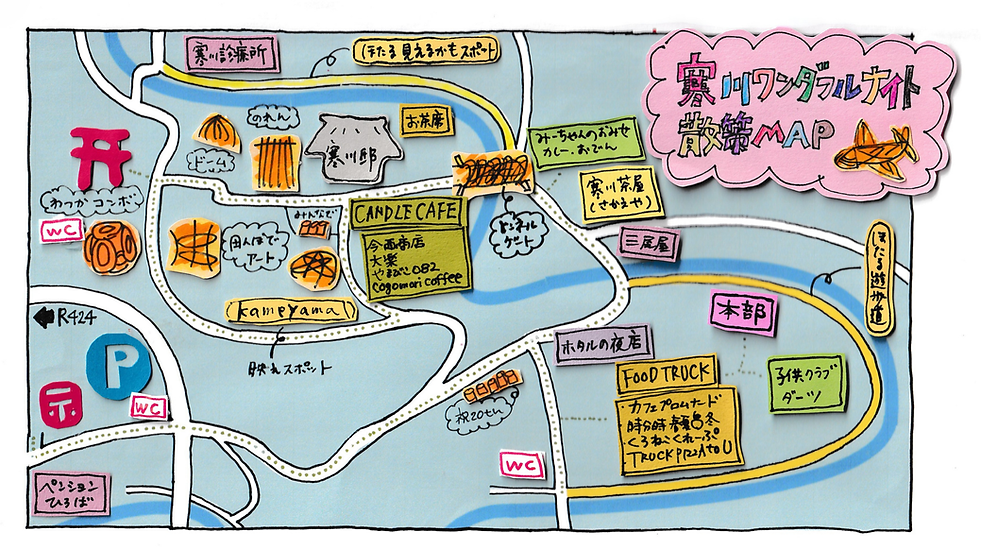 寒川ワンダフルナイト
散策MAP
寒川診療所
ほたる見えるかもスポット
のれん
ドーム
寒川邸
お茶席
みーちゃんのおみせ
カレー、おでん
寒川茶屋
(さかえや)
トンネル
ゲート
わっかコンボ
WC
田んぼで
アート
みんなで
CANDLE CAFE
今西商店
大楽
やまびこ082
cogomori coffee
kameyama
映えスポット
三尾屋
ほたる遊歩道
本部
R424
P
〒
WC
ホタルの夜店
FOOD TRUCK
カフェプロムナード
くろねこくれーぷ
TRUCK PIZZA to U
子供クラブ
ダーツ
WC
ペンション
ひろば